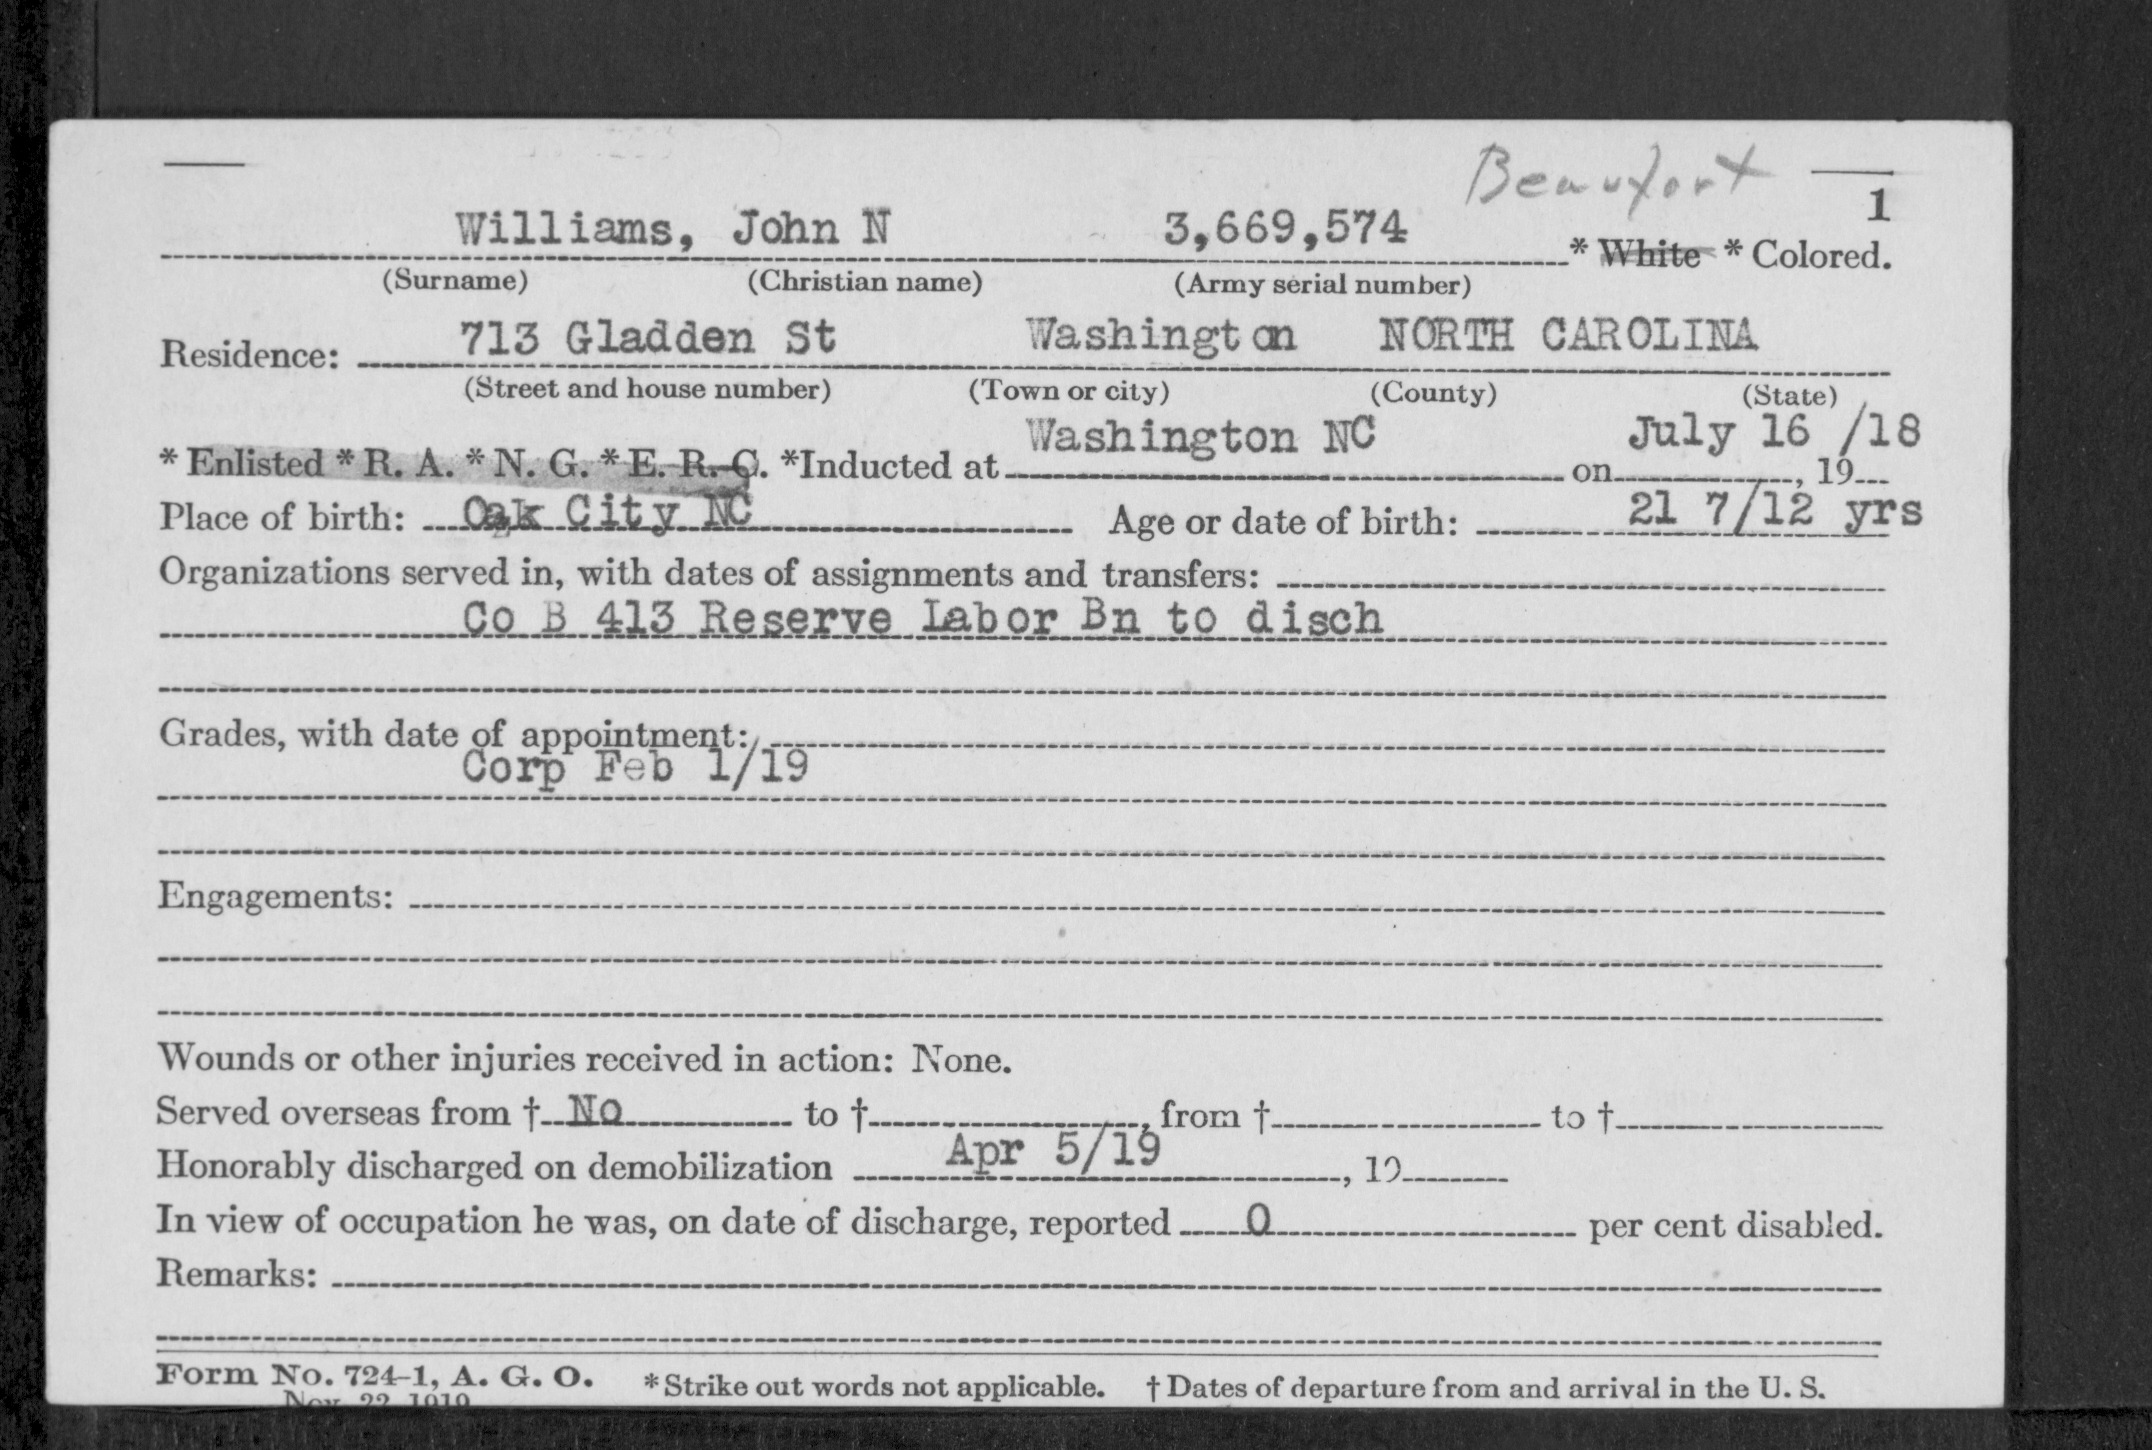 Beaufort
1
Williams, John N 3,669,574 * White * Colored.
(Surname) (Christian name) (Army serial number)
Residence: 713 Gladden St Washington NORTH CAROLINA
(Street and house number) (Town or city) (County) (State)
* Enlisted * R. A. * N. G. * E. R. C. *Inducted at Washington NC on July 16 /18, 19
Place of birth: Oak City NC Age or date of birth: 21 7/12 yrs
Organizations served in, with dates of assignments and transfers:
Co B 413 Reserve Labor Bn to disch
Grades, with date of appointment:
Corp Feb 1/19
Engagements:
Wounds or other injuries received in action: None.
Served overseas from † No to †, from † to †
Honorably discharged on demobilization Apr 5/19, 19
In view of occupation he was, on date of discharge, reported 0 per cent disabled.
Remarks:
Form No. 724-1, A. G. O. * Strike out words not applicable. † Dates of departure from and arrival in the U. S.
Nov. 22, 1919